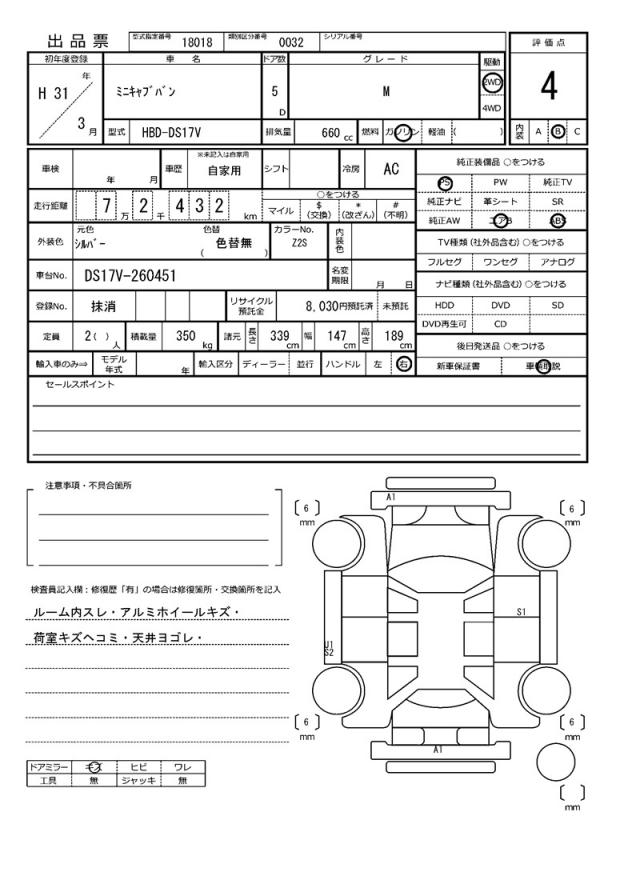 出品票 型式指定番号 18018 類別区分番号 0032 シリアル番号
評価点
4
初年度登録 車名 ドア数 グレード 駆動
H 31 年 3 月 ミニキャブバン 5 D M 2WD 4WD
型式 HBD-DS17V 排気量 660 cc 燃料 ガソリン 軽油 ( ) 内装 A B C
車検 年 月 車歴 ※未記入は自家用 自家用 シフト 冷房 AC
走行距離 7 万 2 千 4 3 2 km ○をつける
マイル $ (交換) * (改ざん) # (不明)
外装色 元色 シルバー 色替 ( 色替無 ) カラーNo. Z2S 内装色
車台No. DS17V-260451 名変期限 月 日
登録No. 抹消 リサイクル預託金 8,030円預託済 未預託
定員 2( ) 人 積載量 350 kg 諸元 長さ 339 cm 幅 147 cm 高さ 189 cm
輸入車のみ⇒ モデル年式 年 輸入区分 ディーラー 並行 ハンドル 左 右
純正装備品 ○をつける
PS PW 純正TV
純正ナビ 革シート SR
純正AW エアB ABS
TV種類 (社外品含む) ○をつける
フルセグ ワンセグ アナログ
ナビ種類 (社外品含む) ○をつける
HDD DVD SD
DVD再生可 CD
後日発送品 ○をつける
新車保証書 車輌取説
セールスポイント
注意事項・不具合箇所
検査員記入欄：修復歴「有」の場合は修復箇所・交換箇所を記入
ルーム内スレ・アルミホイールキズ・
荷室キズヘコミ・天井ヨゴレ・
ドアミラー キズ ヒビ ワレ
工具 無 ジャッキ 無
A1
[ 6 ] mm
[ 6 ] mm
S1
U1
S2
[ 6 ] mm
[ 6 ] mm
A1
[ ] mm